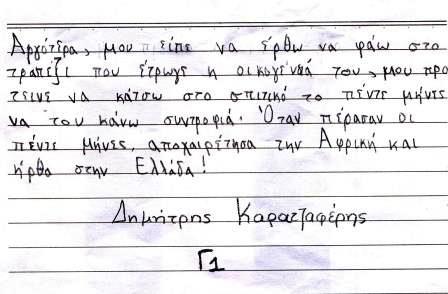 Αργότερα, μου είπε να έρθω να φάω στο
τραπέζι που έτρωγε η οικογένειά του, μου πρό
τεινε να κάτσω στο σπιτικό το πέντε μήνες
να του κάνω συντροφιά. Όταν πέρασαν οι
πέντε μήνες, αποχαιρέτησα την Αφρική και
ήρθα στην Ελλάδα!
Δημήτρης Καρατζαφέρης
Γ1